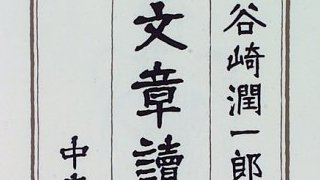 谷崎潤一郎
文章讀
中